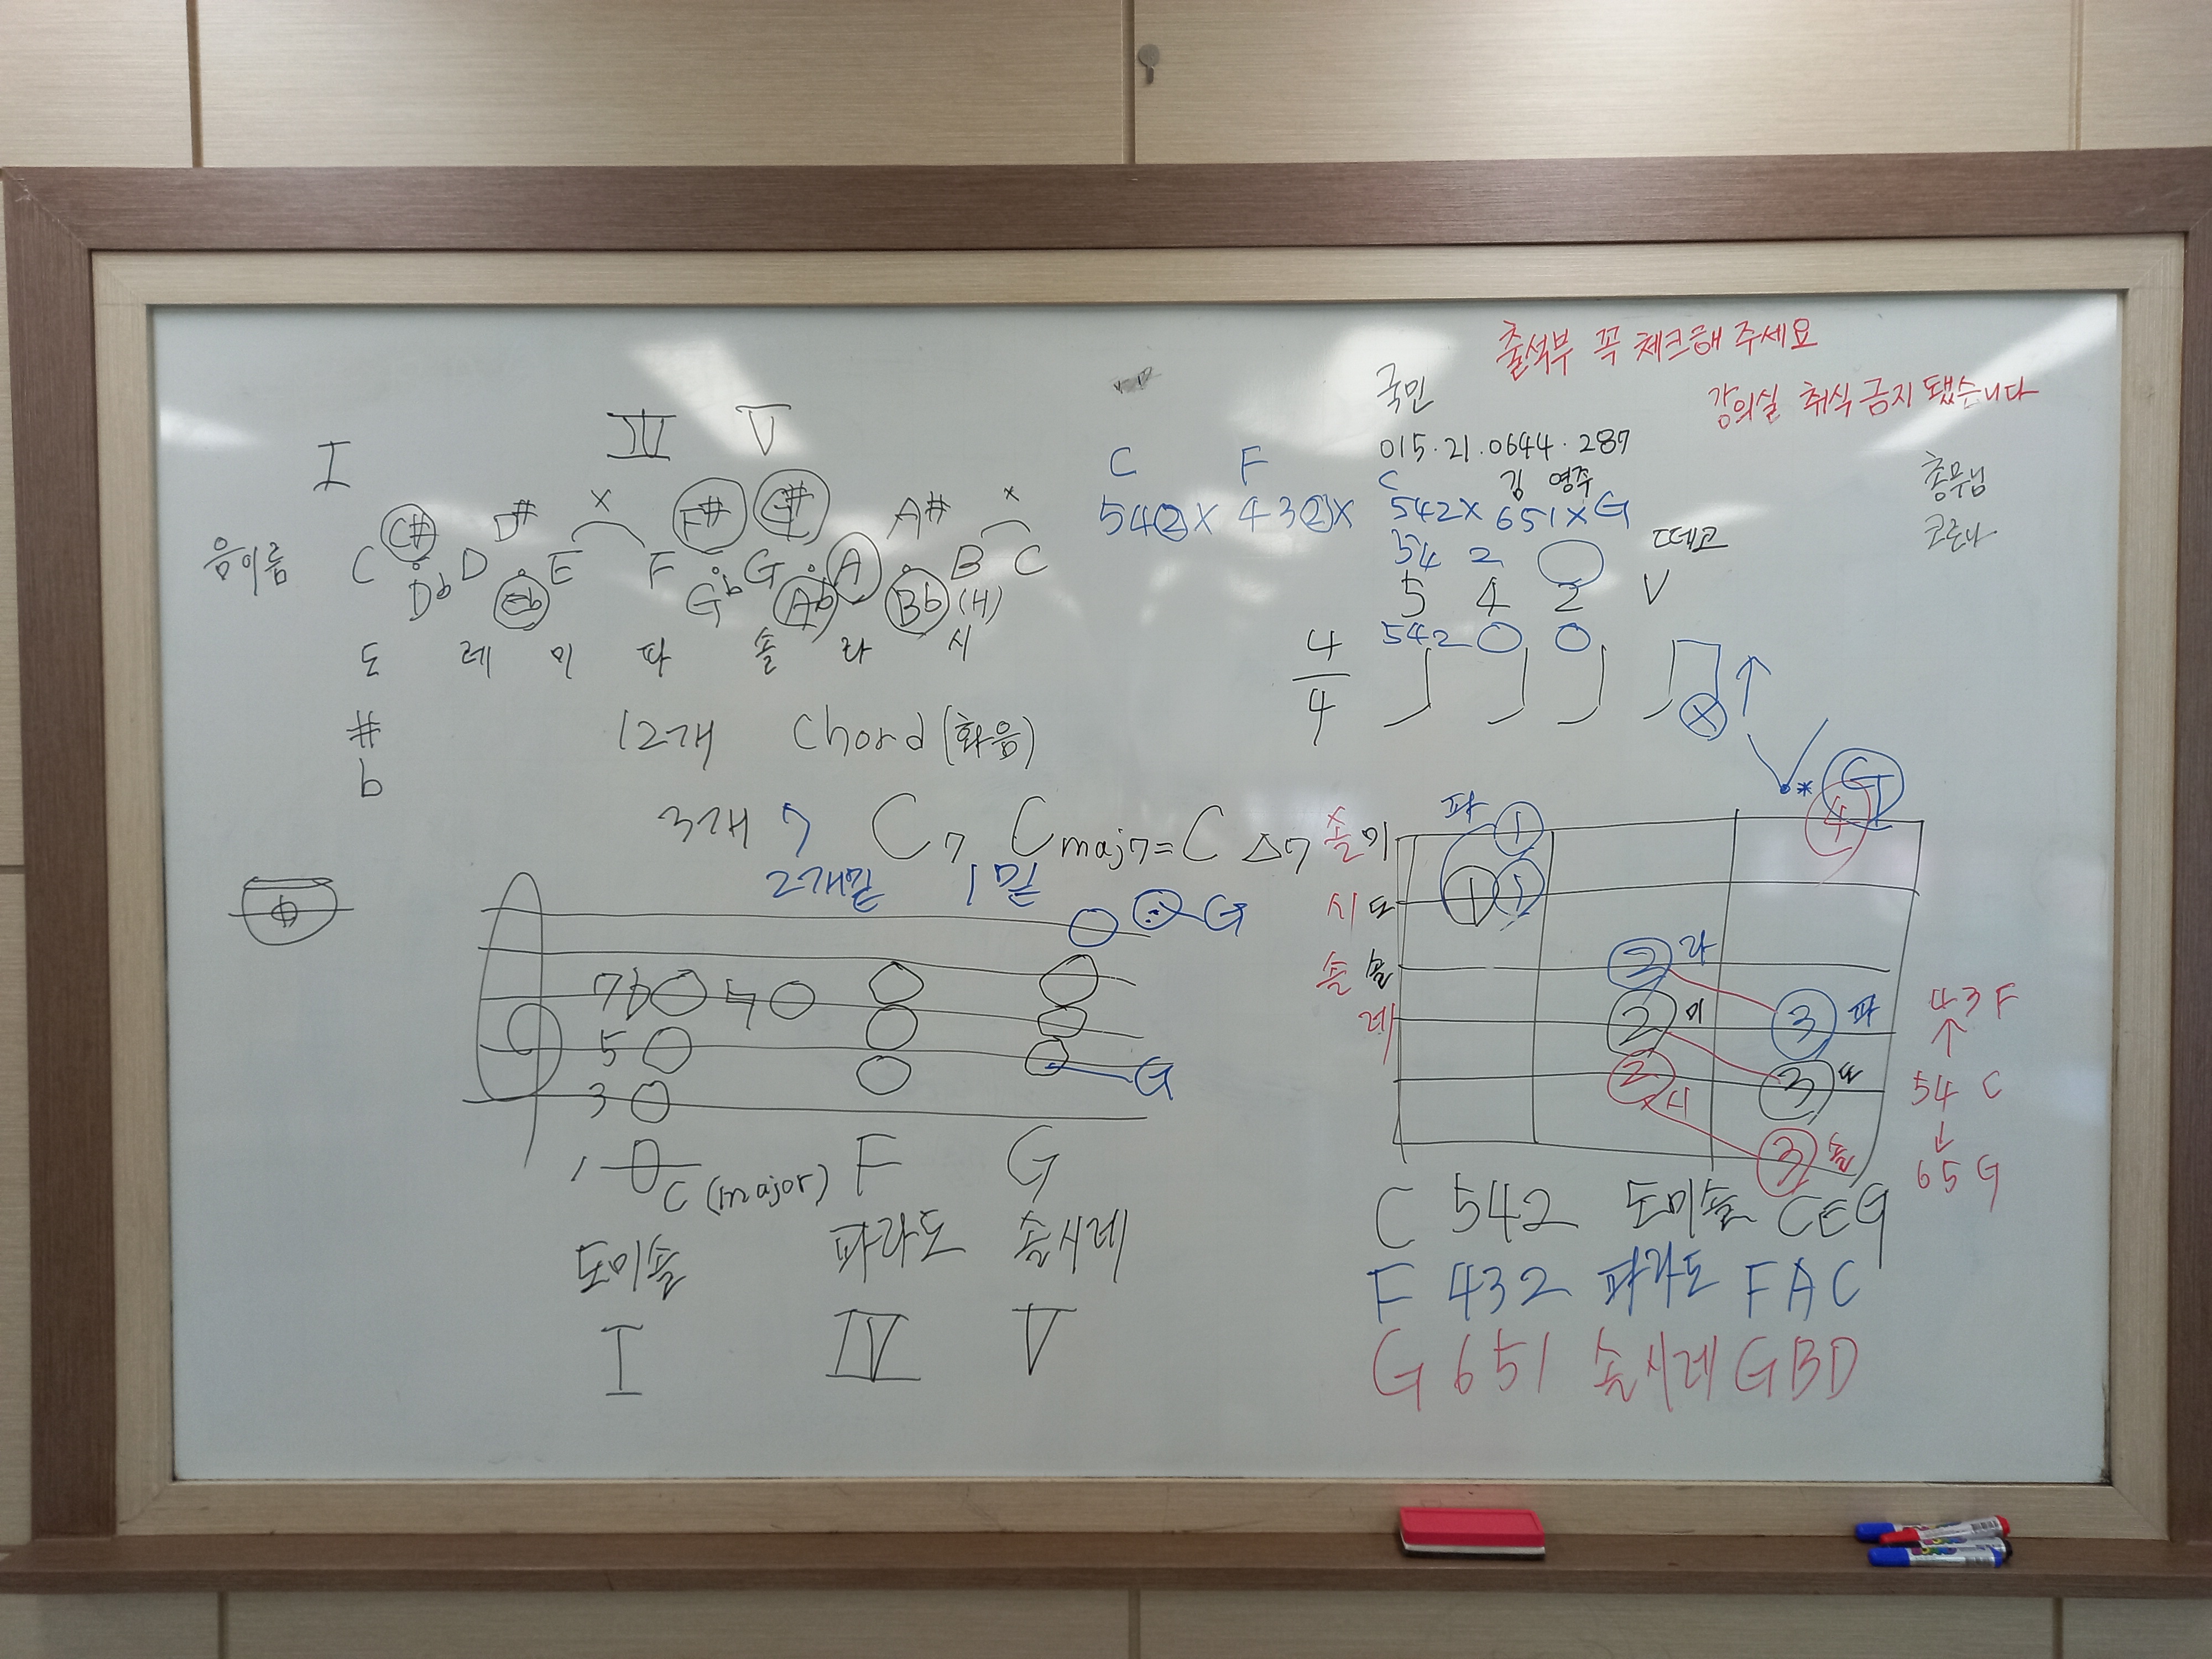 출석부 꼭 체크해 주세요
강의실 취식 금지 됐습니다
국민
015·21·0644·287
김 영주
총무님
코로나
I IV V
C# D# x F# G# A# x
음이름 C D E F G A B C
Db Eb Gb Ab Bb (H)
도 레 미 파 솔 라 시
#
b
12개 chord (화음)
3개 7 C7 Cmaj7 = C △7
2개밑 1밑
G
7b ♮
5
G
3
1 C (major) F G
도미솔 파라도 솔시레
I IV V
C F
542X 432X
C
542X 651X G
54 2
떼고
5 4 2 V
542
4
4
X
G
파 1 4
솔 미
시 도 1 1
2 라
솔 솔
레 2 미 3 파
2 시 3 도
3 솔
43 F
↑
54 C
↓
65 G
C 542 도미솔 CEG
F 432 파라도 FAC
G 651 솔시레 GBD